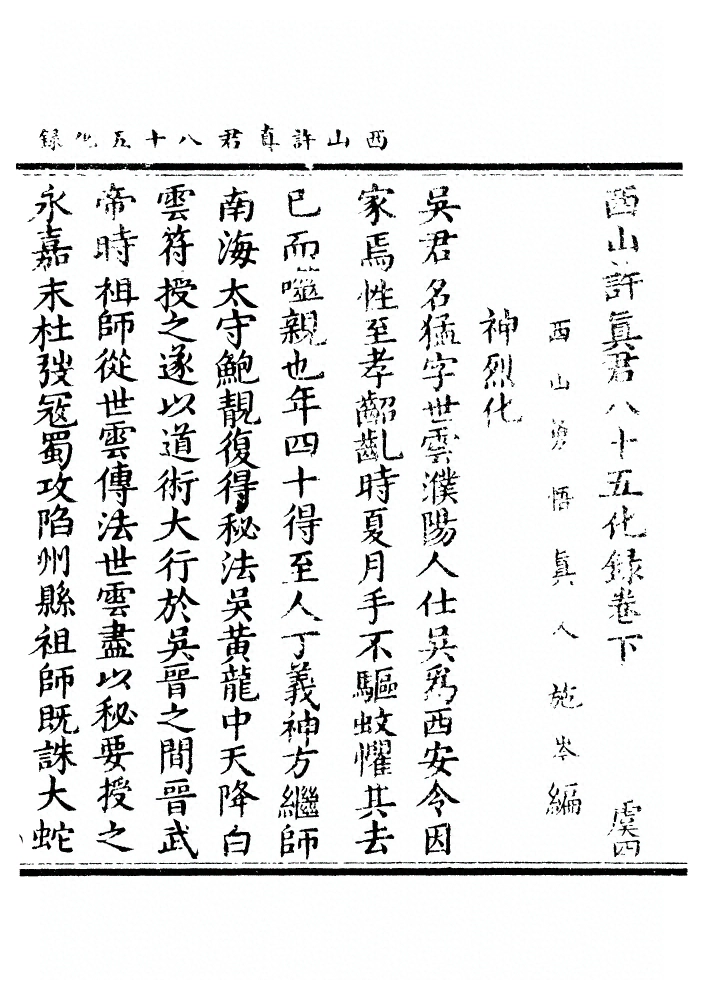 西山許真君八十五化録
西山許真君八十五化録卷下 虞四
西山勇悟真人施岑編
神烈化
吳君名猛字世雲濮陽人仕吳爲西安令因
家焉性至孝齠齔時夏月手不驅蚊懼其去
已而噬親也年四十得至人丁義神方繼師
南海太守鮑靚復得秘法吳黃龍中天降白
雲符授之遂以道術大行於吳晉之間晉武
帝時祖師從世雲傳法世雲盡以秘要授之
永嘉末杜弢寇蜀攻陷州縣祖師既誅大蛇